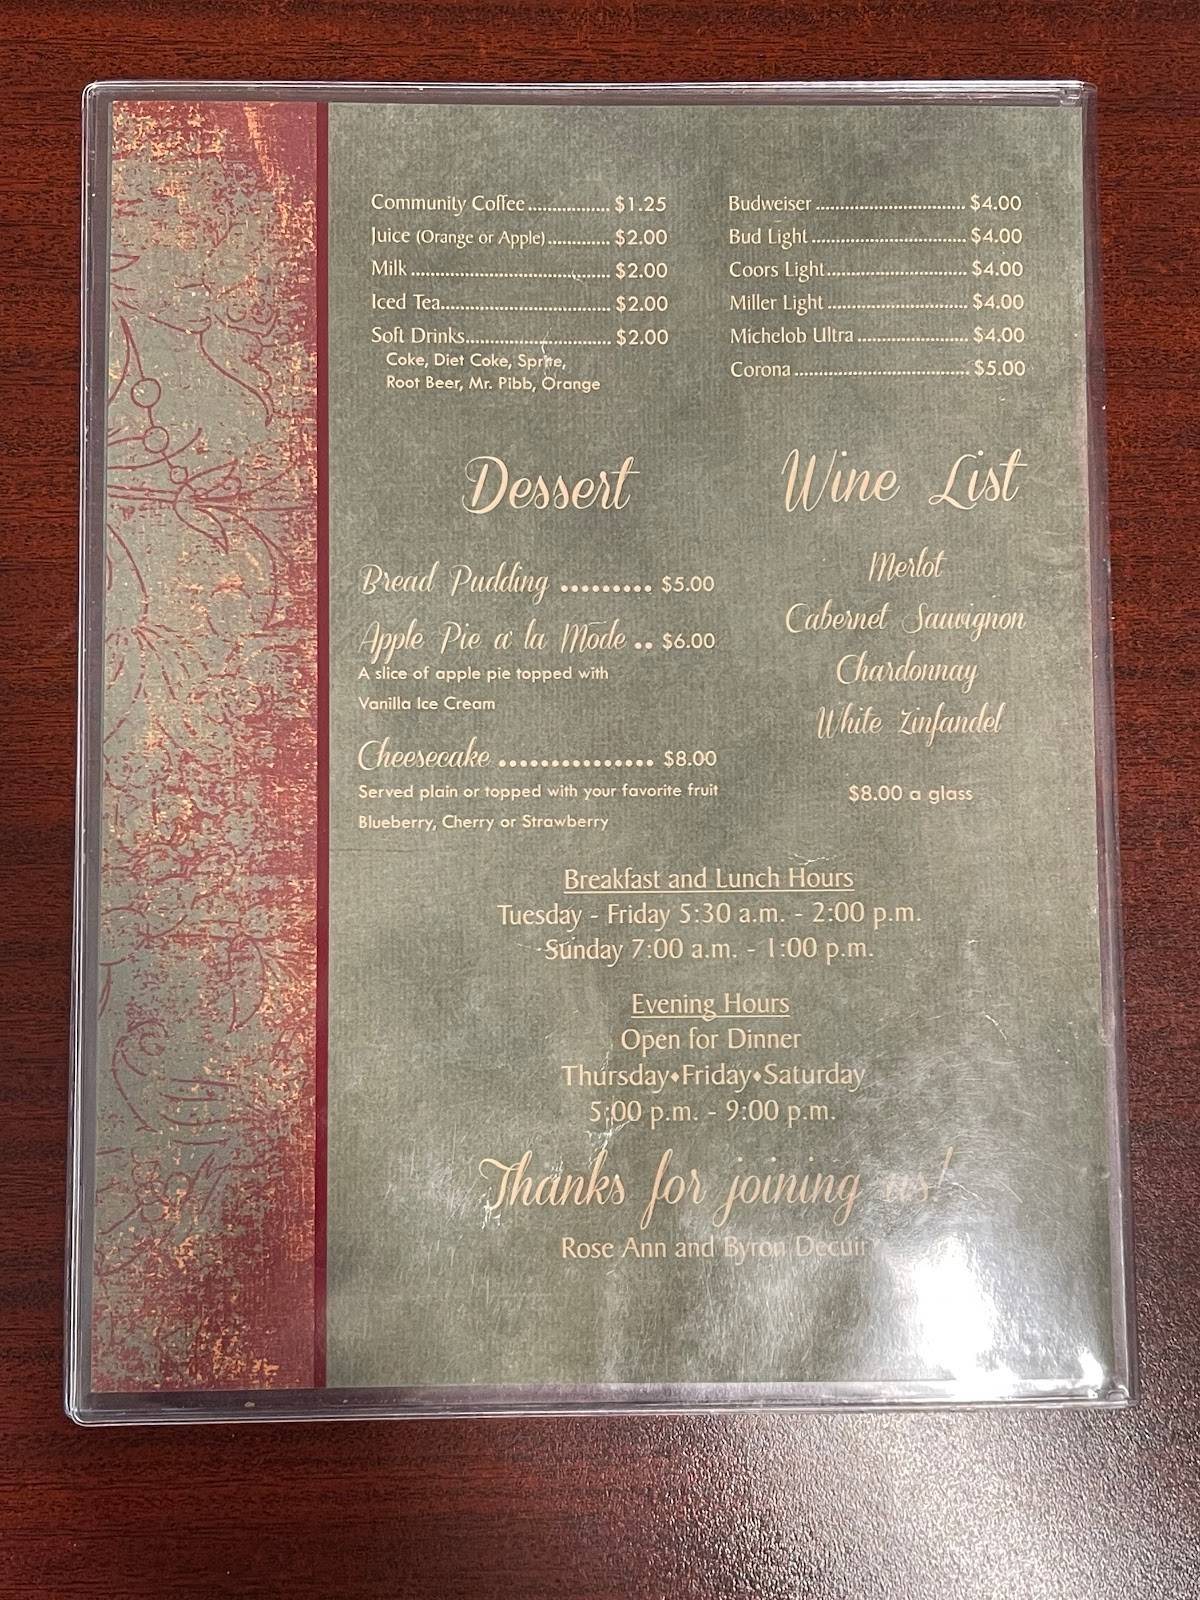 Community Coffee ................. $1.25
Juice (Orange or Apple) ............. $2.00
Milk .......................................... $2.00
Iced Tea.................................... $2.00
Soft Drinks............................... $2.00
Coke, Diet Coke, Sprite,
Root Beer, Mr. Pibb, Orange
Budweiser ............................... $4.00
Bud Light ................................ $4.00
Coors Light.............................. $4.00
Miller Light ............................. $4.00
Michelob Ultra ....................... $4.00
Corona .................................... $5.00
Dessert
Bread Pudding ......... $5.00
Apple Pie a' la Mode .. $6.00
A slice of apple pie topped with
Vanilla Ice Cream
Cheesecake ............... $8.00
Served plain or topped with your favorite fruit
Blueberry, Cherry or Strawberry
Wine List
Merlot
Cabernet Sauvignon
Chardonnay
White Zinfandel
$8.00 a glass
Breakfast and Lunch Hours
Tuesday - Friday 5:30 a.m. - 2:00 p.m.
Sunday 7:00 a.m. - 1:00 p.m.
Evening Hours
Open for Dinner
Thursday♦Friday♦Saturday
5:00 p.m. - 9:00 p.m.
Thanks for joining us!
Rose Ann and Byron Decuir